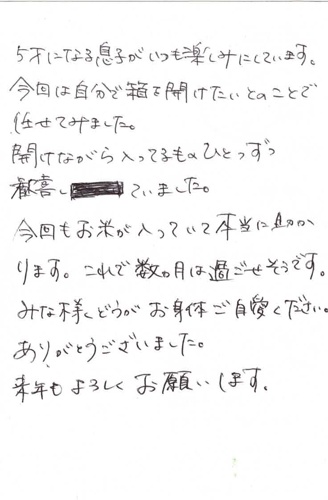 5才になる息子がいつも楽しみにしています。
今回は自分で箱を開けたいとのことで
任せてみました。
開けながら入ってるものひとつずつ
歓喜し ていました。
今回もお米が入っていて本当に助か
ります。これで数ヵ月は過ごせそうです。
みな様どうかお身体ご自愛ください。
ありがとうございました。
来年もよろしくお願いします。